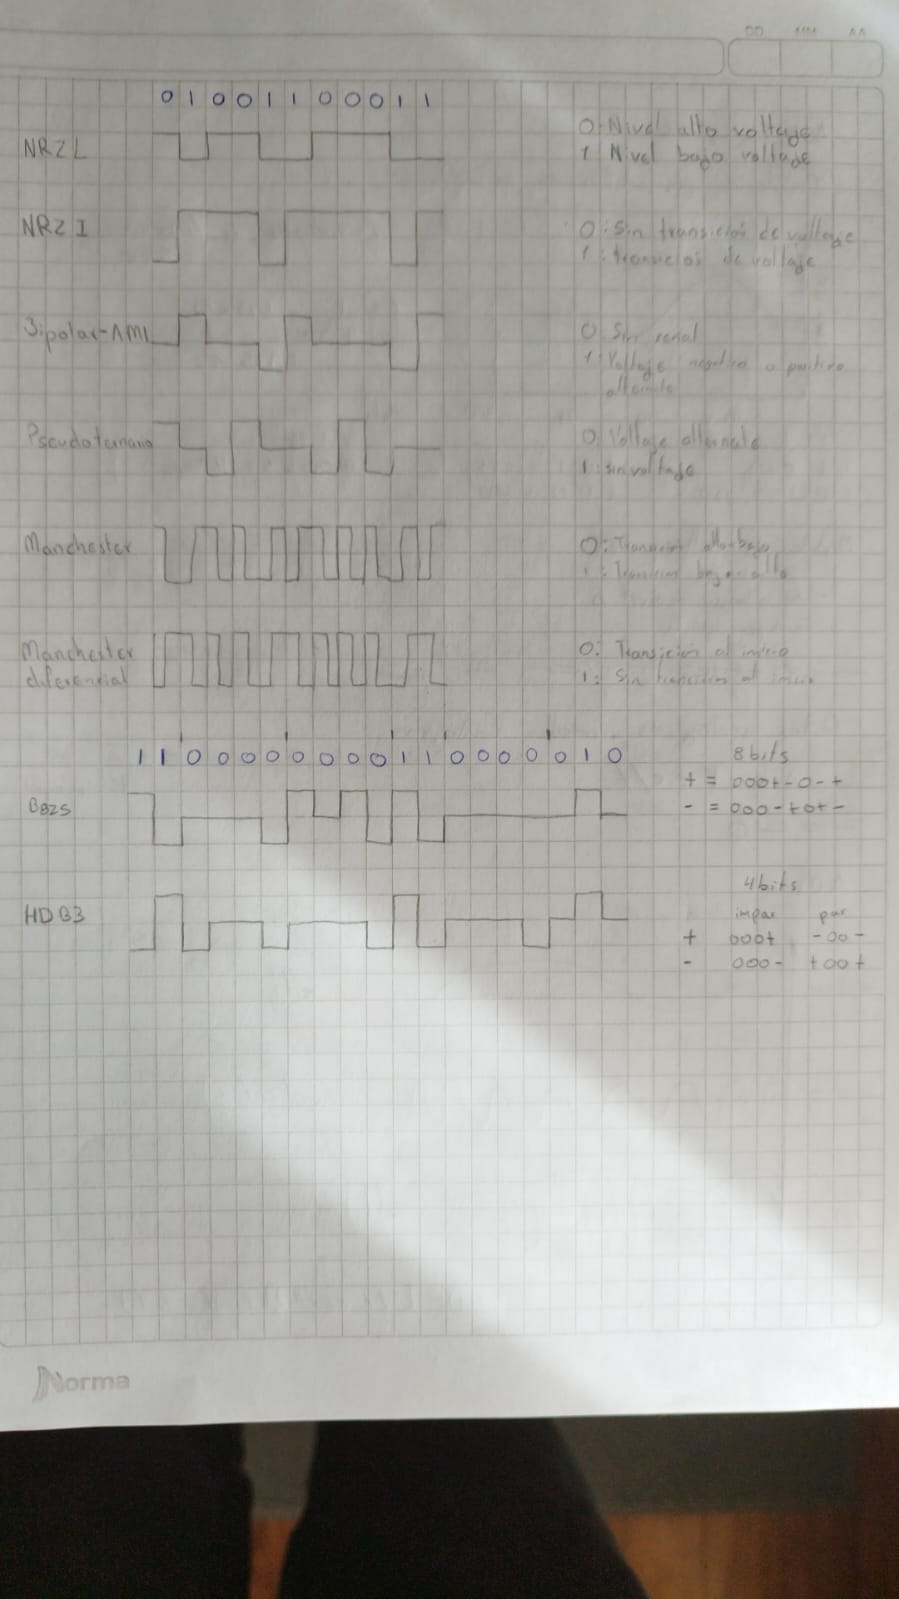 DD MM AA
0 1 0 0 1 1 0 0 0 1 1
NRZ L
0: Nivel alto voltaje
1 Nivel bajo voltaje
NRZ I
0: Sin transición de voltaje
1: transición de voltaje
Bipolar-AMI
0 Sin
1 Voltaje negativo o positivo
Pseudoternario
0 Voltaje alternado
1: sin voltaje
Manchester
0: Transición alto-bajo
1: Transición bajo-alto
Manchester
diferencial
0: Transición al inicio
1: Sin transición al inicio
1 1 0 0 0 0 0 0 0 0 1 1 0 0 0 0 0 1 0
8 bits
+ = 000+-0-+
- = 000-+0+-
B8ZS
4 bits
HDB3
impar par
+ 000+ -00-
- 000- +00+
Norma